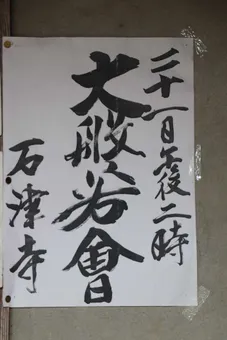 二十一日午後二時
大般若會
石津寺